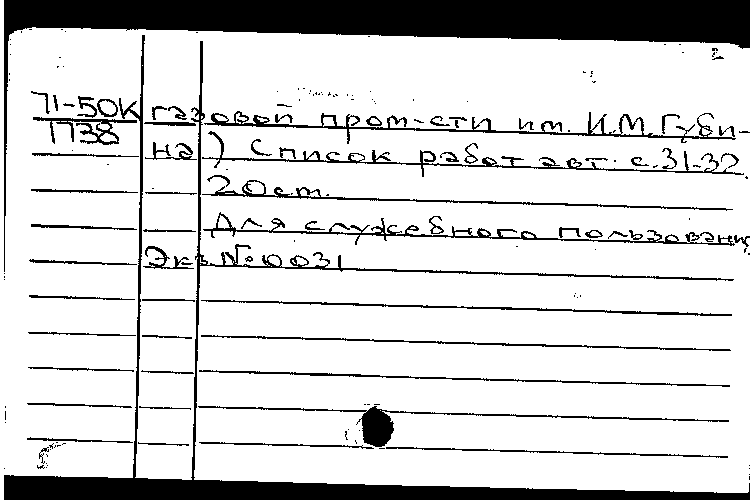 2
71-50К газовой пром-сти им. И.М.Губки-
1738 на) Список работ авт. с.31-32.
20см.
Для служебного пользован
Экз.№0031